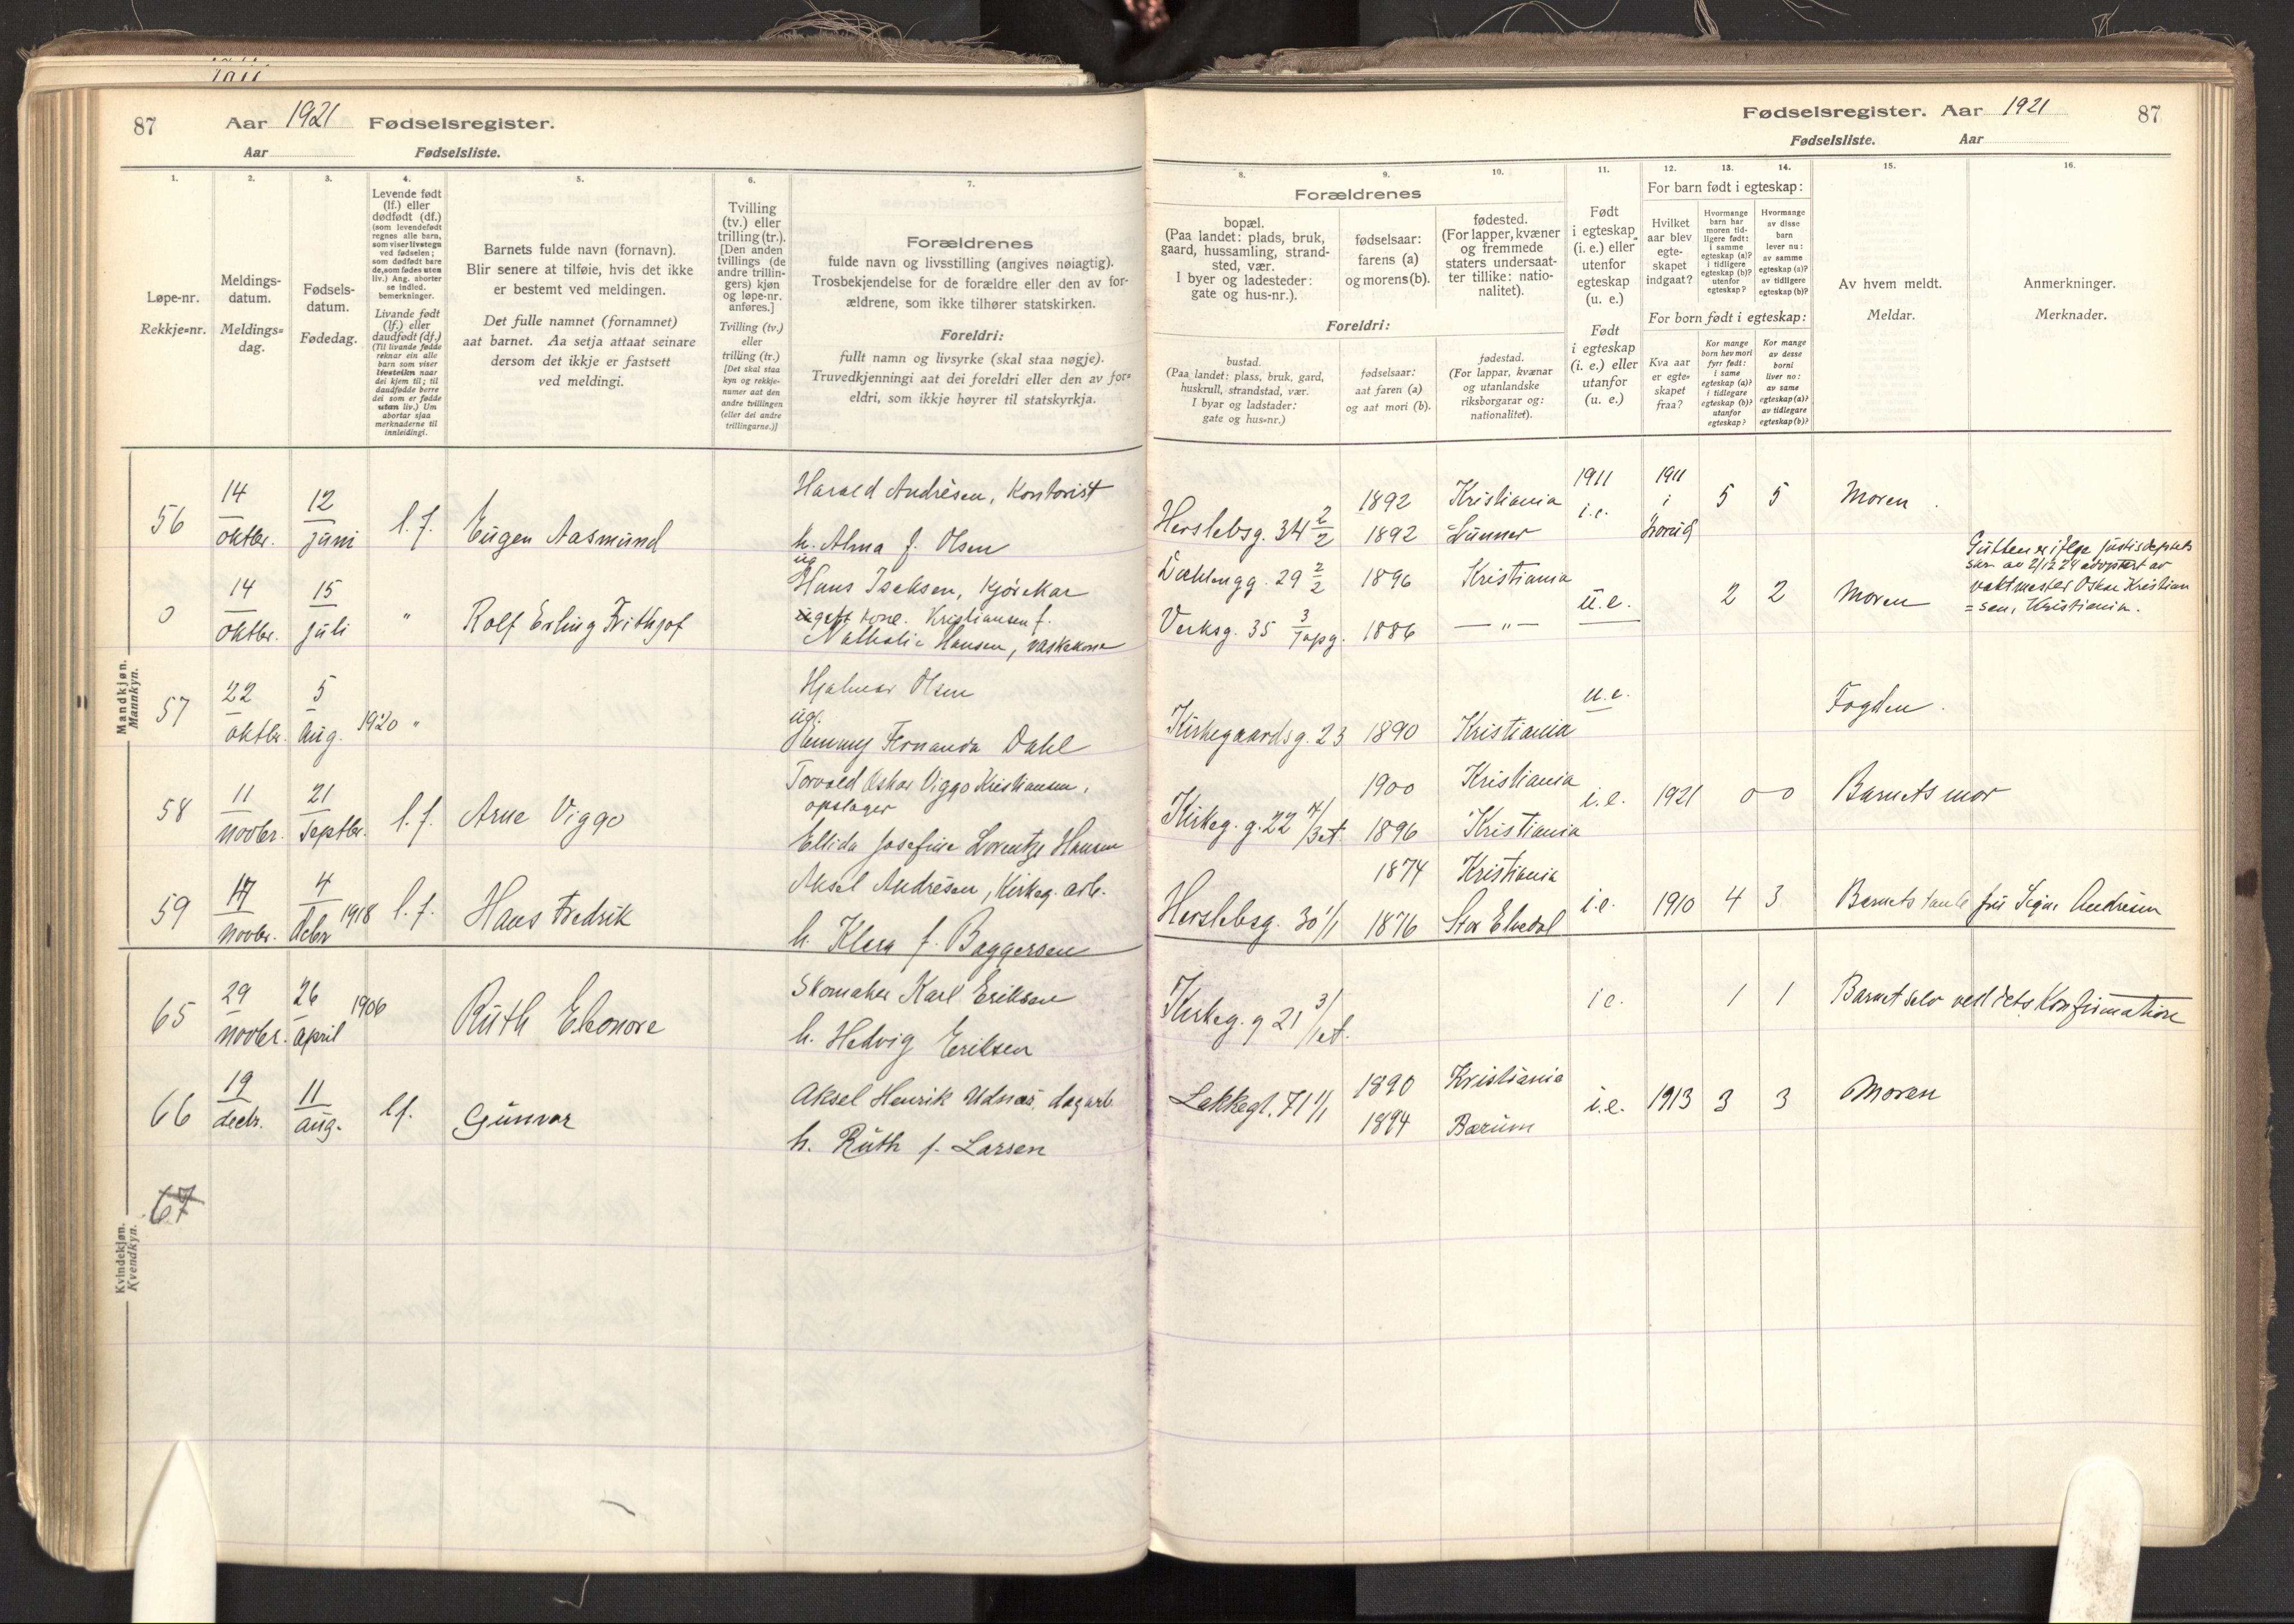 87 Aar 1921 Fødselsregister.
Aar Fødselsliste.
1. 2. 3. 4. 5. 6. 7.
Løpe-nr.
Rekkje=nr.
Meldings-
datum.
Meldings=
dag.
Fødsels-
datum.
Fødedag.
Levende født
(lf.) eller
dødfødt (df.)
(som levendefødt
regnes alle barn,
som viser livstegn
ved fødselen;
som dødfødt bare
de, som fødes uten
liv.) Ang. aborter
se indled.
bemerkninger.
Livande født
(lf.) eller
daudfødt (df.)
(Til livande fødde
reknar ein alle
barn som viser
livsteikn naar
dei kjem til; til
daudfødde berre
dei som er fødde
utan liv.) Um
abortar sjaa
merknaderne til
innleidingi.
Barnets fulde navn (fornavn).
Blir senere at tilføie, hvis det ikke
er bestemt ved meldingen.
Det fulle namnet (fornamnet)
aat barnet. Aa setja attaat seinare
dersom det ikkje er fastsett
ved meldingi.
Tvilling
(tv.) eller
trilling (tr.).
[Den anden
tvillings (de
andre trillin-
gers) kjøn
og løpe-nr.
anføres.]
Tvilling (tv.)
eller
trilling (tr.)
[Det skal staa
kyn og rekkje-
numer aat den
andre tvillingen
(eller dei andre
trillingarne.)]
Forældrenes
fulde navn og livsstilling (angives nøiagtig).
Trosbekjendelse for de forældre eller den av for-
ældrene, som ikke tilhører statskirken.
Foreldri:
fullt namn og livsyrke (skal staa nøgje).
Truvedkjenningi aat dei foreldri eller den av for=
eldri, som ikkje høyrer til statskyrkja.
Mandkjøn.
Mannkyn.
56 14 oktbr. 12 juni l. f. Eugen Aasmund Harald Andrésen, Kontorist
h. Alma f. Olsen
0 14 oktbr. 15 juli " Rolf Erling Frithjof ug Hans Isaksen, Kjørekar
ugift kone. Kristiansen f.
Nathalie Hansen, vaskekone
57 22 oktbr. 5 Aug. 1920 " Hjalmar Olsen
ug.
Hemmy Fernanda Dahl
58 11 novbr. 21 Septbr. l. f. Arne Viggo Torvald Oskar Viggo Kristiansen,
opslager
Ellida Josefine Lorentze Hansen
59 17 novbr. 4 decbr 1918 l. f. Hans Fredrik Aksel Andrésen, Kirkeg. arb.
h. Klara f. Baggersen
Kvindekjøn.
Kvendkyn.
65 29 novbr. 26 april 1906 Ruth Eleonore Skomaker Karl Eriksen
h. Hedvig Eriksen
66 19 decbr. 11 aug. lf. Gunvor Aksel Henrik Udnæs, dagarb.
h. Ruth f. Larsen
67
Fødselsregister. Aar 1921 87
Fødselsliste. Aar
8. 9. 10. 11. 12. 13. 14. 15. 16.
Forældrenes
bopæl.
(Paa landet: plads, bruk,
gaard, hussamling, strand-
sted, vær.
I byer og ladesteder:
gate og hus-nr.).
fødselsaar:
farens (a)
og morens (b).
fødested.
(For lapper, kvæner
og fremmede
staters undersaat-
ter tillike: natio-
nalitet).
Foreldri:
bustad.
(Paa landet: plass, bruk, gard,
huskrull, strandstad, vær.
I byar og ladstader:
gate og hus=nr.)
fødselsaar:
aat faren (a)
og aat mori (b).
fødestad.
(For lappar, kvænar
og utanlandske
riksborgarar og:
nationalitet).
Født
i egteskap
(i. e.) eller
utenfor
egteskap
(u. e.)
Født
i egteskap
(i. e.) eller
utanfor
(u. e.)
For barn født i egteskap:
Hvilket
aar blev
egte-
skapet
indgaat?
Hvormange
barn har
moren tid-
ligere født:
i samme
egteskap (a)?
i tidligere
egteskap (b)?
utenfor
egteskap?
Hvormange
av disse
barn
lever nu:
av samme
egteskap (a)?
av tidligere
egteskap (b)?
For born født i egteskap:
Kva aar
er egte-
skapet
fraa?
Kor mange
born hev mori
fyrr født:
i same
egteskap (a)?
i tidlegare
egteskap (b)?
utanfor
egteskap?
Kor mange
av desse
borni
liver no:
av same
egteskap (a)?
av tidlegare
egteskap (b)?
Av hvem meldt.
Meldar.
Anmerkninger.
Merknader.
Herslebsg. 34 2/2 1892 Kristiania 1911 i.e. 1911 i 5 5 Moren
1892 Lunner
Dælengg. 29 2/2 1896 Kristiania u.e. 2 2 Moren
Verksg. 35 3/ 1886 — " —
Gutten er ifølge justisdeptets
skr. av 2/12 24 adoptert av
vaktmester Oskar Kristian
=sen, Kristiania.
Kirkegaardsg. 23 1890 Kristiania u.e. Fogden.
Kirkeg. g. 22 4/3et. 1900 Kristiania i.e. 1921 0 0 Barnets mor
1896 Kristiania
Herslebsg. 30 1/1 1874 Kristiania i.e. 1910 4 3 Barnets tante fru Signe Andrésen
1876 Stor Elvedal
Kirkeg. g 21 3/1et. i e. 1 1 Barnet selv ved dets Konfirmation
Lakkegt. 71 1/1 1890 Kristiania i.e. 1913 3 3 Moren
1894 Bærum